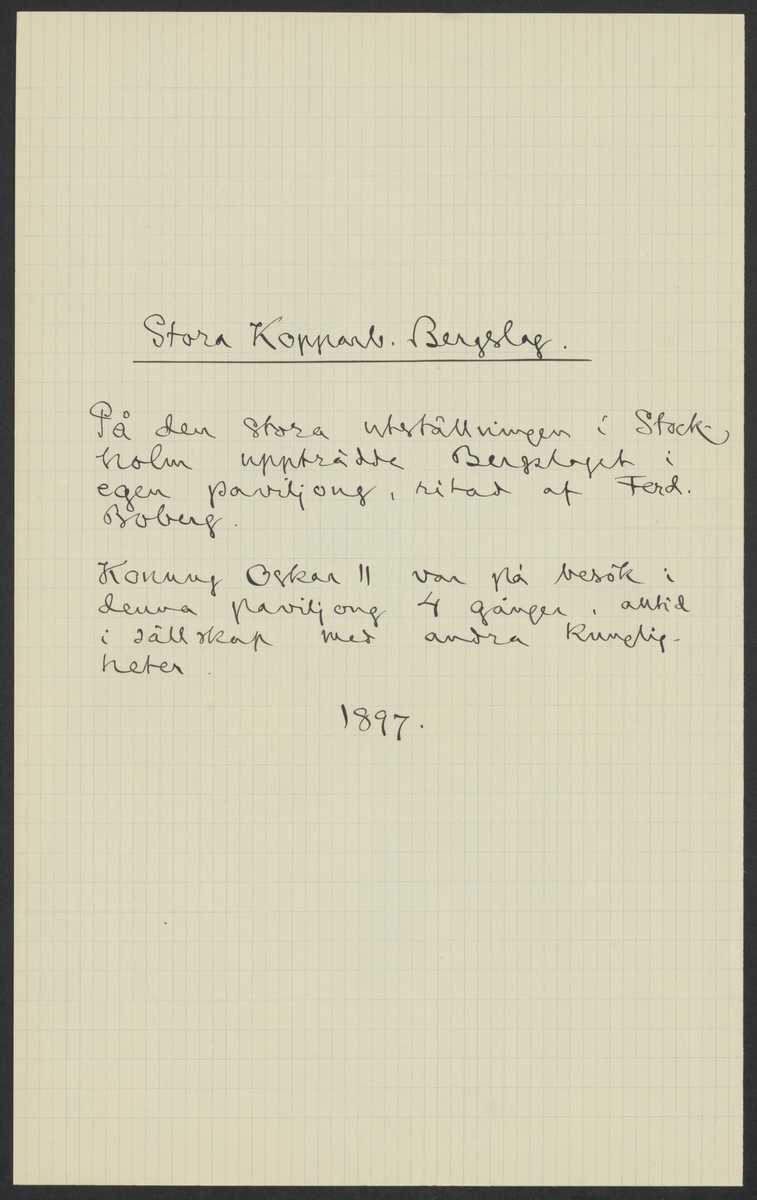 Stora Kopparb. Bergslag.
På den stora utställningen i Stock-
holm uppträdde Bergslaget i
egen paviljong, ritad af Ferd.
Boberg.
Konung Oskar II var på besök i
denna paviljong 4 gånger, alltid
i sällskap med andra kunglig-
heter.
1897.